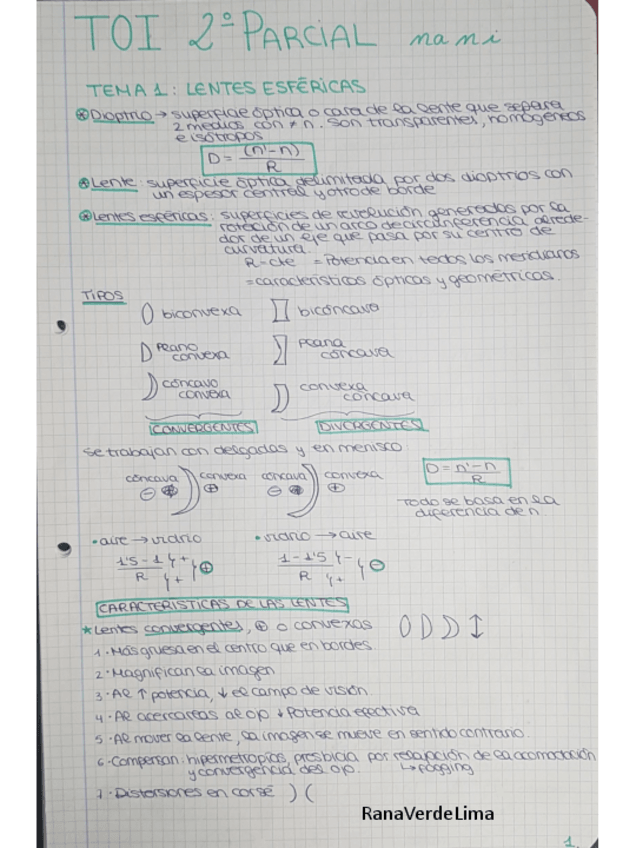 TOI 2º PARCIAL nani
TEMA 1: LENTES ESFÉRICAS
Dioptrio → superficie óptica o cara de la lente que separa
2 medios con ≠ n. Son transparentes, homogéneos
e isótropos
D = (n'-n) / R
Lente: superficie óptica delimitada por dos dioptrios con
un espesor central y otro de borde
Lentes esféricas: superficies de revolución generadas por la
rotación de un arco de circunferencia alrede-
dor de un eje que pasa por su centro de
curvatura.
R-cte = Potencia en todos los meridianos
= características ópticas y geométricas.
TIPOS
biconvexa bicóncava
Plano convexa Plana cóncava
cóncavo convexa convexa cóncava
CONVERGENTES DIVERGENTES
Se trabajan con delgadas y en menisco.
cóncava convexa cóncava convexa D = n'-n / R
⊖ ⊕ ⊖ ⊕
Todo se basa en la
diferencia de n
• aire → vidrio • vidrio → aire
1'5 - 1 / R } + } + } ⊕ 1 - 1'5 / R } - } + } ⊖
CARACTERISTICAS DE LAS LENTES
* Lentes convergentes, ⊕ o convexas
1. Más gruesa en el centro que en bordes.
2. Magnifican la imagen
3. Al ↑ potencia, ↓ el campo de visión
4. Al acercarlas al ojo ↓ Potencia efectiva
5. Al mover la lente, la imagen se mueve en sentido contrario.
6. Compensan: hipermetropías, presbicia por relajación de la acomodación
y convergencia del ojo. ↳ fogging
7. Distorsiones en corsé ) (
RanaVerdeLima
1.